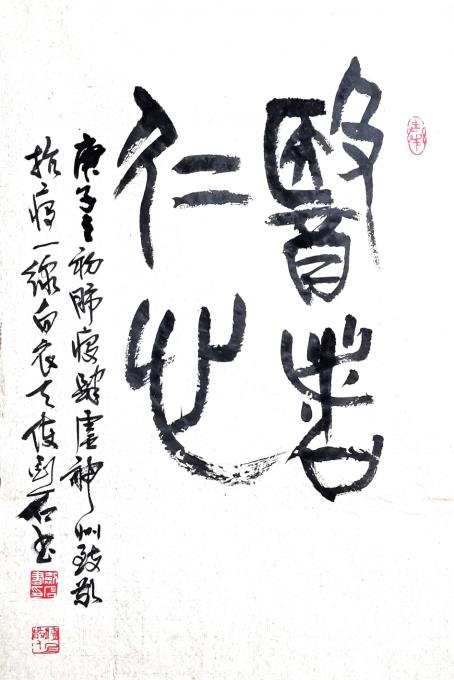 醫者
仁心
庚子之初肺疫肆虐神州致敬
抗疫一線白衣天使石书